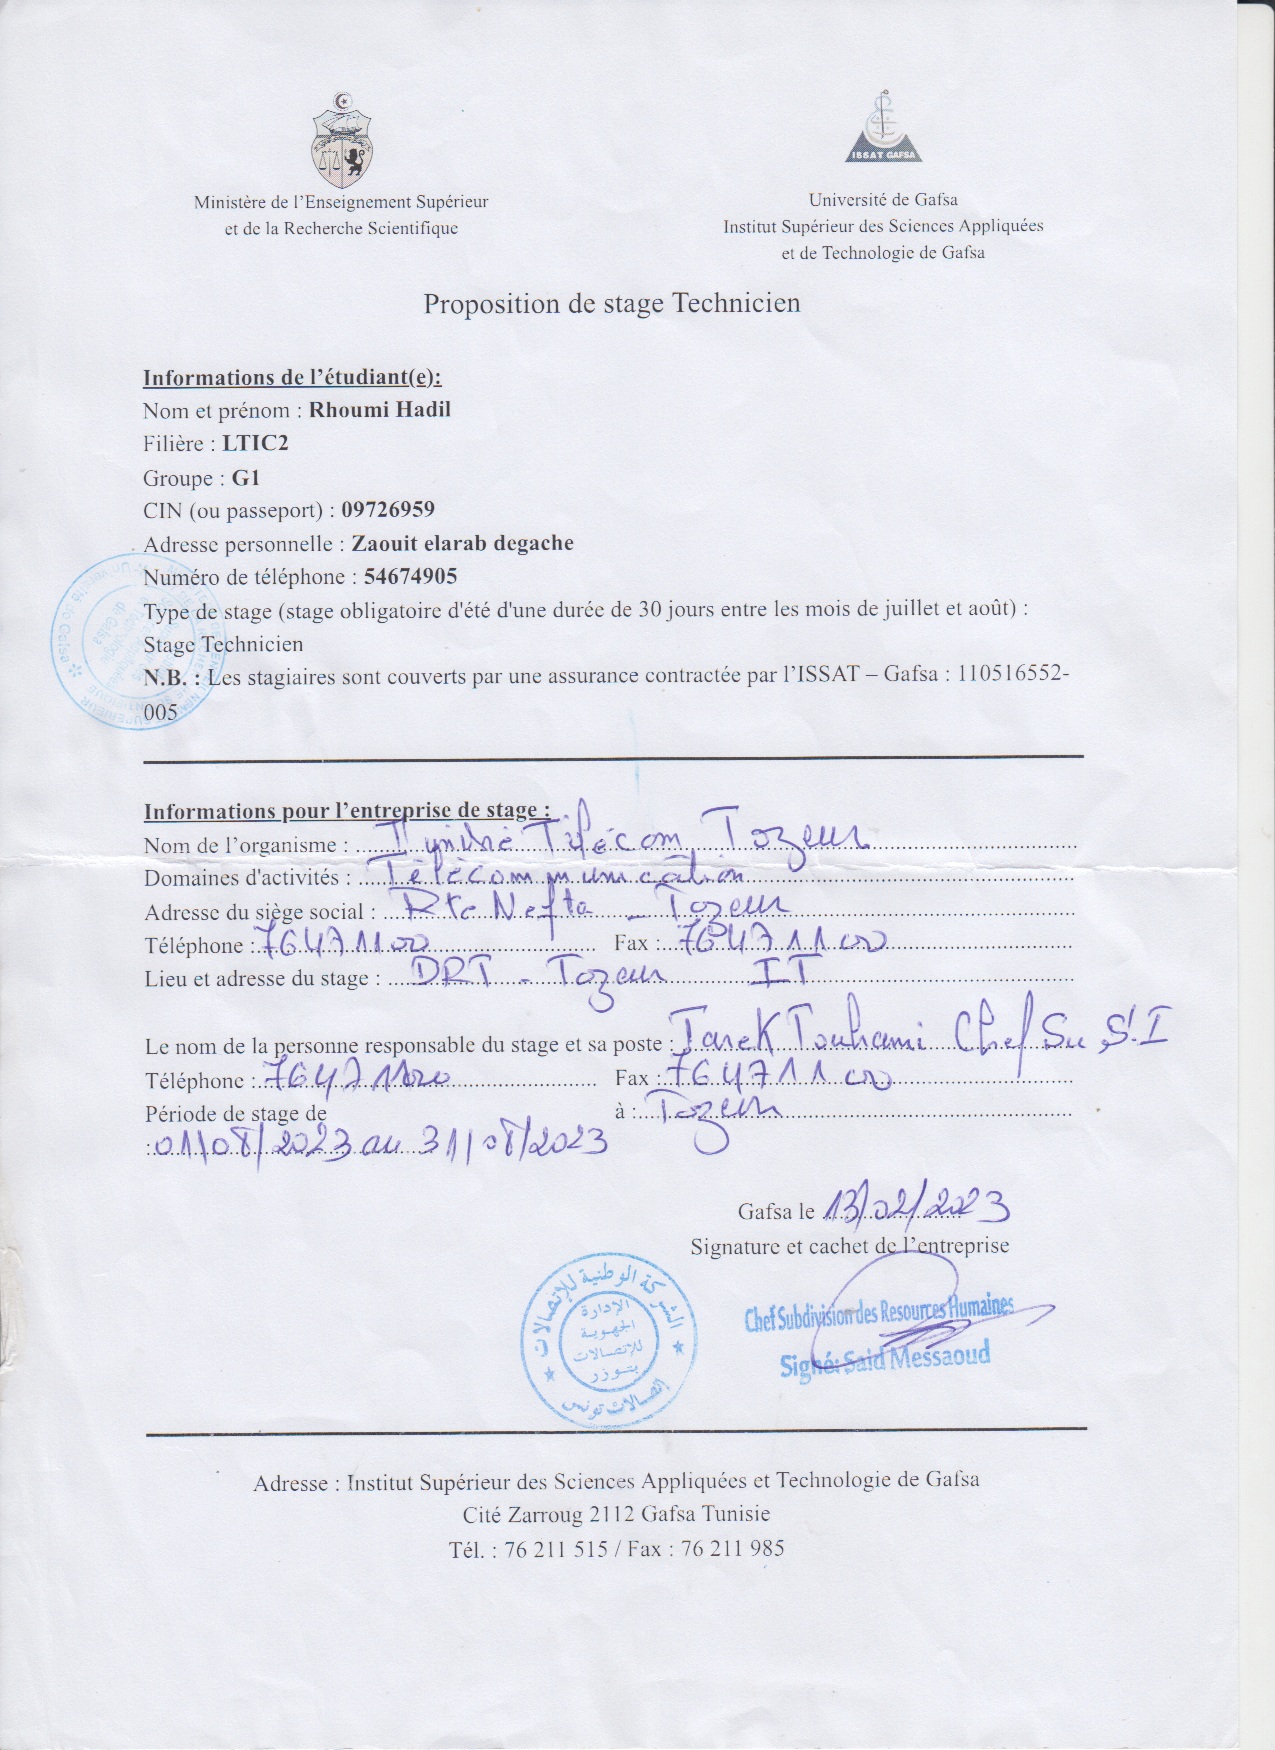 ISSAT GAFSA
Ministère de l'Enseignement Supérieur
et de la Recherche Scientifique
Université de Gafsa
Institut Supérieur des Sciences Appliquées
et de Technologie de Gafsa
Proposition de stage Technicien
Informations de l'étudiant(e):
Nom et prénom : Rhoumi Hadil
Filière : LTIC2
Groupe : G1
CIN (ou passeport) : 09726959
Adresse personnelle : Zaouit elarab degache
Numéro de téléphone : 54674905
Type de stage (stage obligatoire d'été d'une durée de 30 jours entre les mois de juillet et août) :
Stage Technicien
N.B. : Les stagiaires sont couverts par une assurance contractée par l'ISSAT – Gafsa : 110516552-
005
Informations pour l'entreprise de stage :
Nom de l'organisme : Tunisie Télécom Tozeur
Domaines d'activités : Télécommunication
Adresse du siège social : Rte Nefta - Tozeur
Téléphone : 76471100 Fax : 76471100
Lieu et adresse du stage : DRT - Tozeur IT
Le nom de la personne responsable du stage et sa poste : Tarek Touhami Chef Su S.I
Téléphone : 76471100 Fax : 76471100
Période de stage de à : Tozeur
: 01/08/2023 au 31/08/2023
Gafsa le 13/02/2023
Signature et cachet de l'entreprise
الشركة الوطنية للإتصالات
الإدارة
الجهوية
للإتصالات
بتوزر
إتصالات تونس
Chef Subdivision des Resources Humaines
Signé: Said Messaoud
Adresse : Institut Supérieur des Sciences Appliquées et Technologie de Gafsa
Cité Zarroug 2112 Gafsa Tunisie
Tél. : 76 211 515 / Fax : 76 211 985